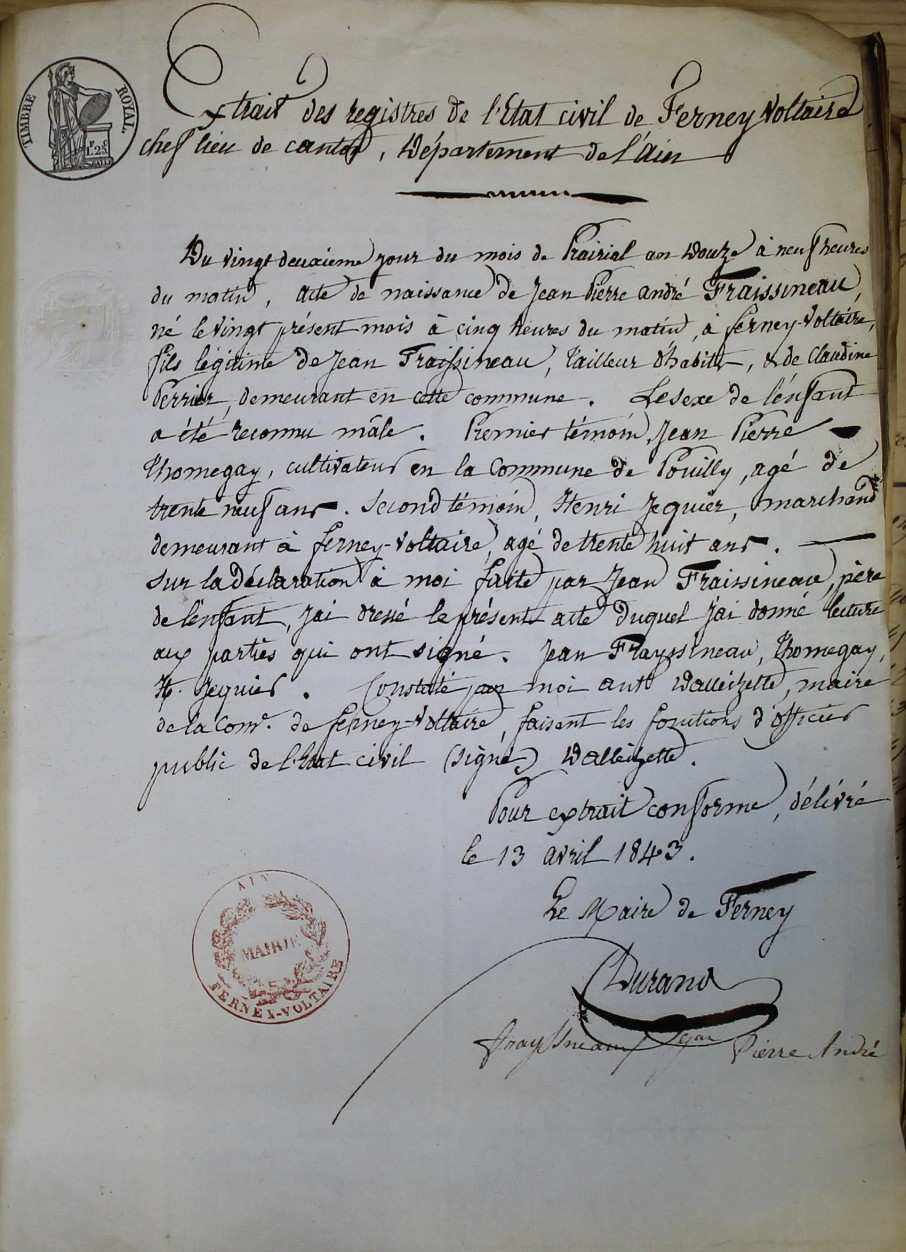 TIMBRE ROYAL
1.25
Extrait des registres de l'Etat civil de Ferney Voltaire
chef lieu de canton, Département de l'Ain
Du vingt deuxième jour du mois de Prairial an Douze à neuf heures
du matin, acte de naissance de Jean Pierre andré Fraissineau,
né le vingt présent mois à cinq heures du matin, à ferney-Voltaire,
fils légitime de Jean Fraissineau, tailleur d'habits, & de Claudine
Perrier, demeurant en cette commune. Le sexe de l'enfant
a été reconnu mâle. Premier témoin, Jean Pierre
Thomegay, cultivateur en la commune de Pouilly, agé de
trente neuf ans. Second témoin, Henri Jequier, marchand
demeurant à ferney-Voltaire, agé de trente huit ans.
Sur la déclaration à moi faite par Jean Fraissineau, père
de l'enfant, j'ai dressé le présent acte duquel j'ai donné lecture
aux parties qui ont signé. Jean Frayssineau, Thomegay,
H. Jequier. Constaté par moi ant. Walleizette, maire
de la Com.e de ferney-Voltaire, faisent les fonctions d'officier
public de l'Etat civil (signé) Walleizette.
Pour extrait conforme, délivré
le 13 avril 1843.
Le Maire de Ferney
Durand
Frayssineau Jean Pierre André
AIN
MAIRIE
FERNEY-VOLTAIRE